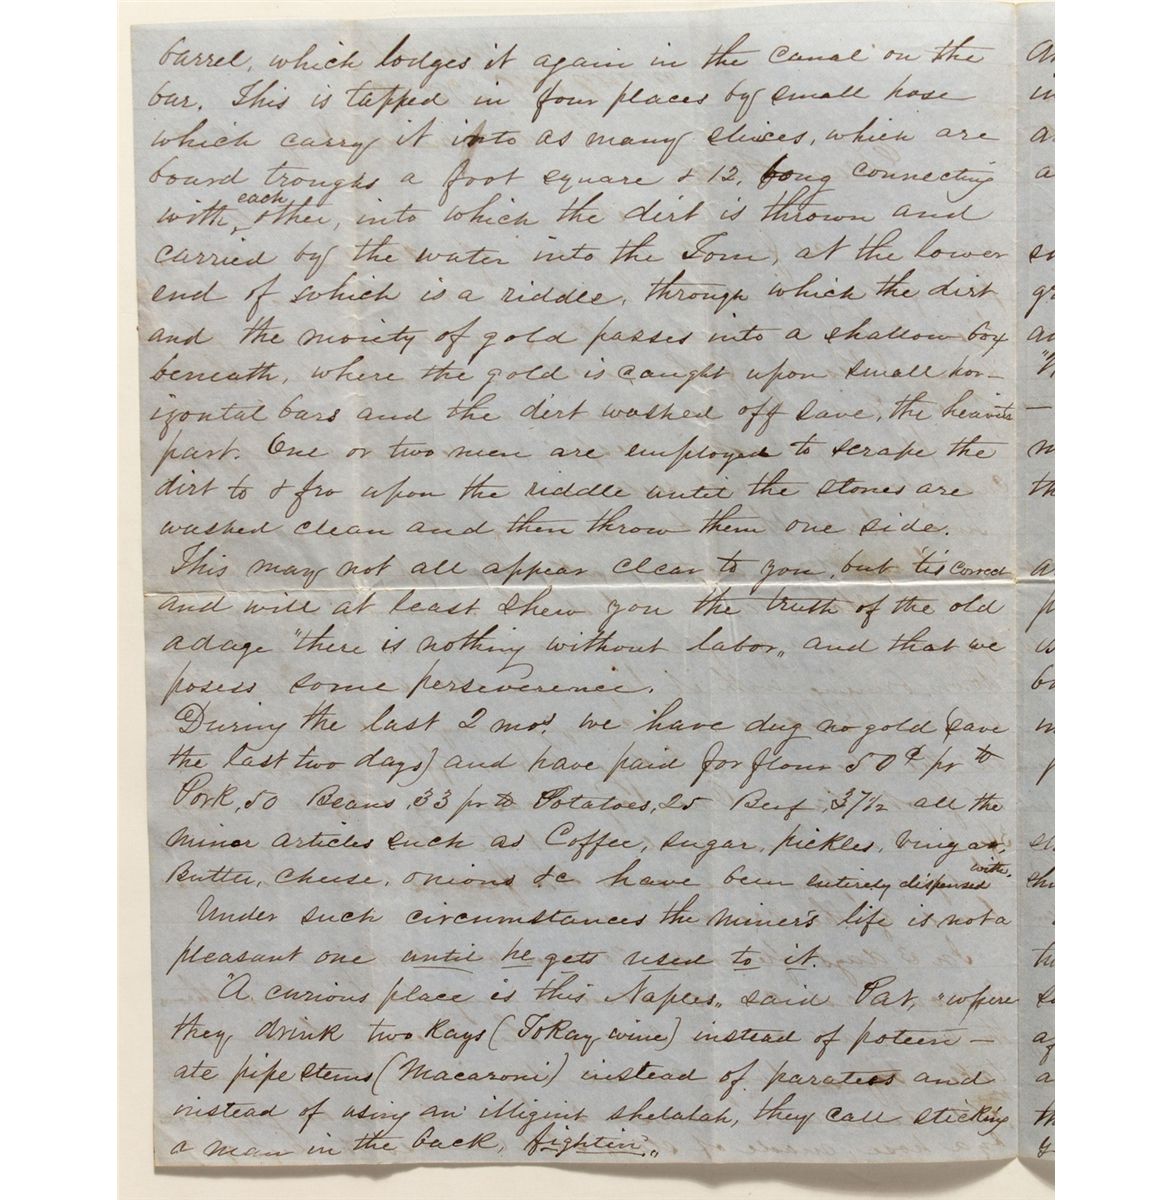 barrel, which lodges it again in the canal on the
bar. This is tapped in four places by small hose
which carry it into as many sluices, which are
board troughs a foot square & 12, long connecting
with each other, into which the dirt is thrown and
carried by the water into the Tom, at the lower
end of which is a riddle, through which the dirt
and the moiety of gold passes into a shallow box
beneath, where the gold is caught upon small hor-
izontal bars and the dirt washed off save, the heaviest
part. One or two men are employed to scrape the
dirt to & fro upon the riddle until the stones are
washed clean and then throw them one side.
This may not all appear clear to you, but tis correct
and will at least shew you the truth of the old
adage "there is nothing without labor" and that we
posess some perseverence.
During the last 2 mos. we have dug no gold (save
the last two days) and have paid for flour 50 ¢ pr lb
Pork, 50 Beans, 33 pr lb Potatoes, 25 Beef, 37½ all the
minor articles such as Coffee, sugar, pickles, vinegar,
Butter, cheese, onions &c have been entirely dispensed with.
Under such circumstances the miner's life is not a
pleasant one until he gets used to it.
"A curious place is this Naples" said Pat, "where
they drink two Kays (ToKay wine) instead of poteen -
ate pipe stems (Macaroni) instead of paratees and
instead of using an illigint shelalah, they call sticking
a man in the back, fightin"